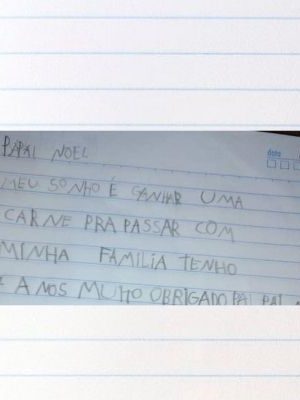 data
PAPAI NOEL
MEU SONHO É GANHAR UMA
CARNE PRA PASSAR COM
MINHA FAMILIA TENHO
ANOS MUITO OBRIGADO PAPAI